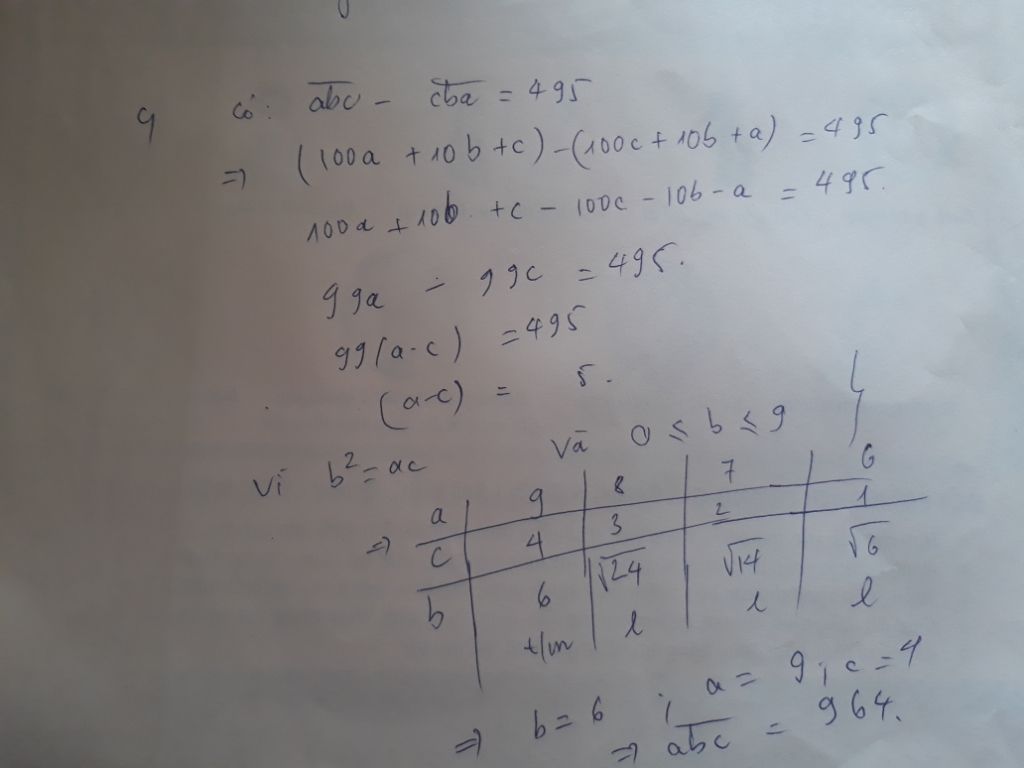 có: abc̅ - cba̅ = 495
=> (100a + 10b + c) - (100c + 10b + a) = 495
100a + 10b + c - 100c - 10b - a = 495.
99a - 99c = 495.
99(a-c) = 495
(a-c) = 5.
Vì b² = ac và 0 ≤ b ≤ 9
=> a | 9 | 8 | 7 | 6
c | 4 | 3 | 2 | 1
b | 6 | √24 | √14 | √6
t/m | l | l | l
=> b = 6 ; a = 9 ; c = 4
=> abc̅ = 964.